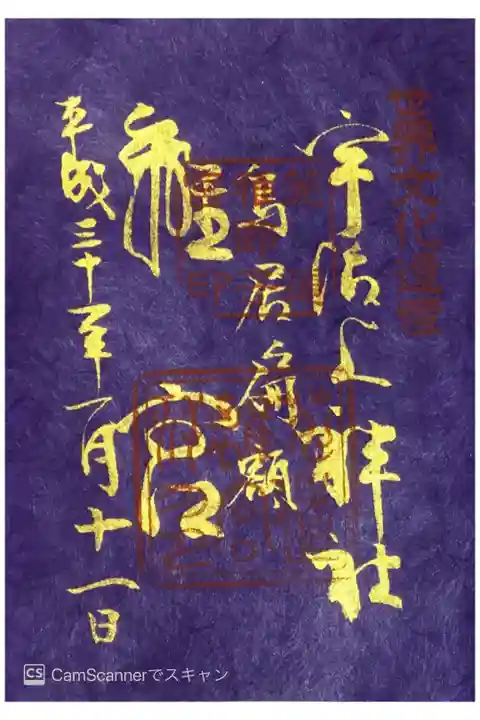 世界文化遺産
宇治上神社
鳥居扁額
離宮
平成三十年一月十一日
CS CamScannerでスキャン